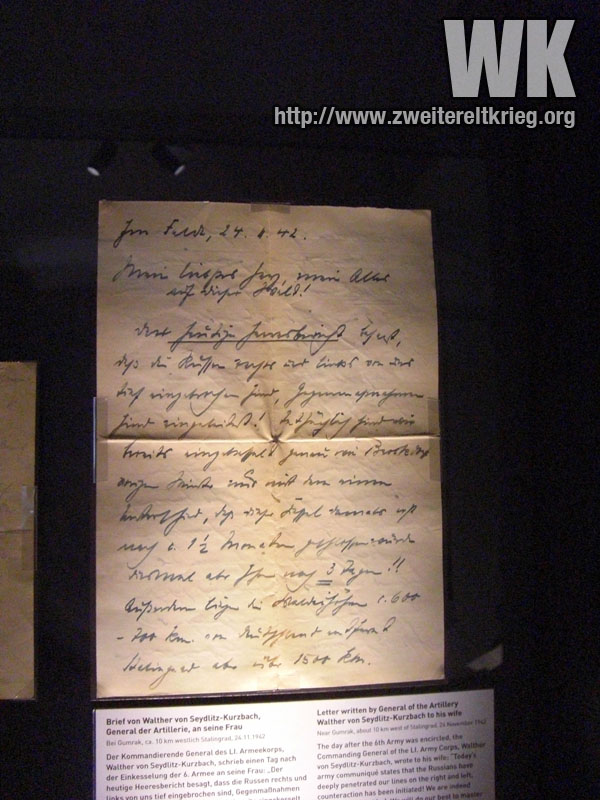 WK
http://www.zweitereltkrieg.org
Im Felde, 24. 42.
Mein liebes, mein Alles
auf dieser Welt!
Der heutige Heeresbericht besagt,
daß die Russen rechts und links von uns
tief eingebrochen sind, Gegenmaßnahmen
sind eingeleitet! Tatsächlich sind wir
bereits eingekesselt genau wie
vorigen Winter nur mit dem einen
Unterschied, daß dieser Kessel damals erst
nach c. 1½ Monaten geschlossen wurde
diesmal aber schon nach 3 Tagen!!
Außerdem liegen die Waldaihöhen c. 600
- 700 km. von Deutschland entfernt
Stalingrad aber über 1500 km.
Brief von Walther von Seydlitz-Kurzbach,
General der Artillerie, an seine Frau
Bei Gumrak, ca. 10 km westlich Stalingrad, 24.11.1942
Der Kommandierende General des LI. Armeekorps,
Walther von Seydlitz-Kurzbach, schrieb einen Tag nach
der Einkesselung der 6. Armee an seine Frau: „Der
heutige Heeresbericht besagt, dass die Russen rechts und
links von uns tief eingebrochen sind, Gegenmaßnahmen
Letter written by General of the Artillery
Walther von Seydlitz-Kurzbach to his wife
Near Gumrak, about 10 km west of Stalingrad, 24 November 1942
The day after the 6th Army was encircled, the
Commanding General of the LI. Army Corps, Walther
von Seydlitz-Kurzbach, wrote to his wife: "Today's
army communiqué states that the Russians have
deeply penetrated our lines on the right and left,
counteraction has been initiated! We are indeed